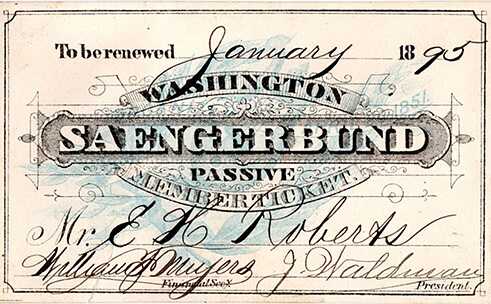 To be renewed January 1895
WASHINGTON
1851.
SAENGERBUND
PASSIVE
MEMBER TICKET.
Mr. E H Roberts
William Muyers J. Waldman
Financial Sec'y. President.